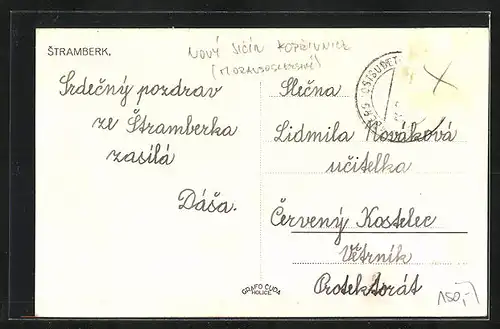 ŠTRAMBERK.
NOVÝ JIČÍN KOPŘIVNICE
(MORAVSOSLEZSKÝ)
Srdečný pozdrav
ze Štramberka
zasílá
Dáša.
Slečna
Lidmila Nováková
učitelka
Červený Kostelec
Větrník
Protektorát
GRAFO ČUDA
HOLICE
150,-